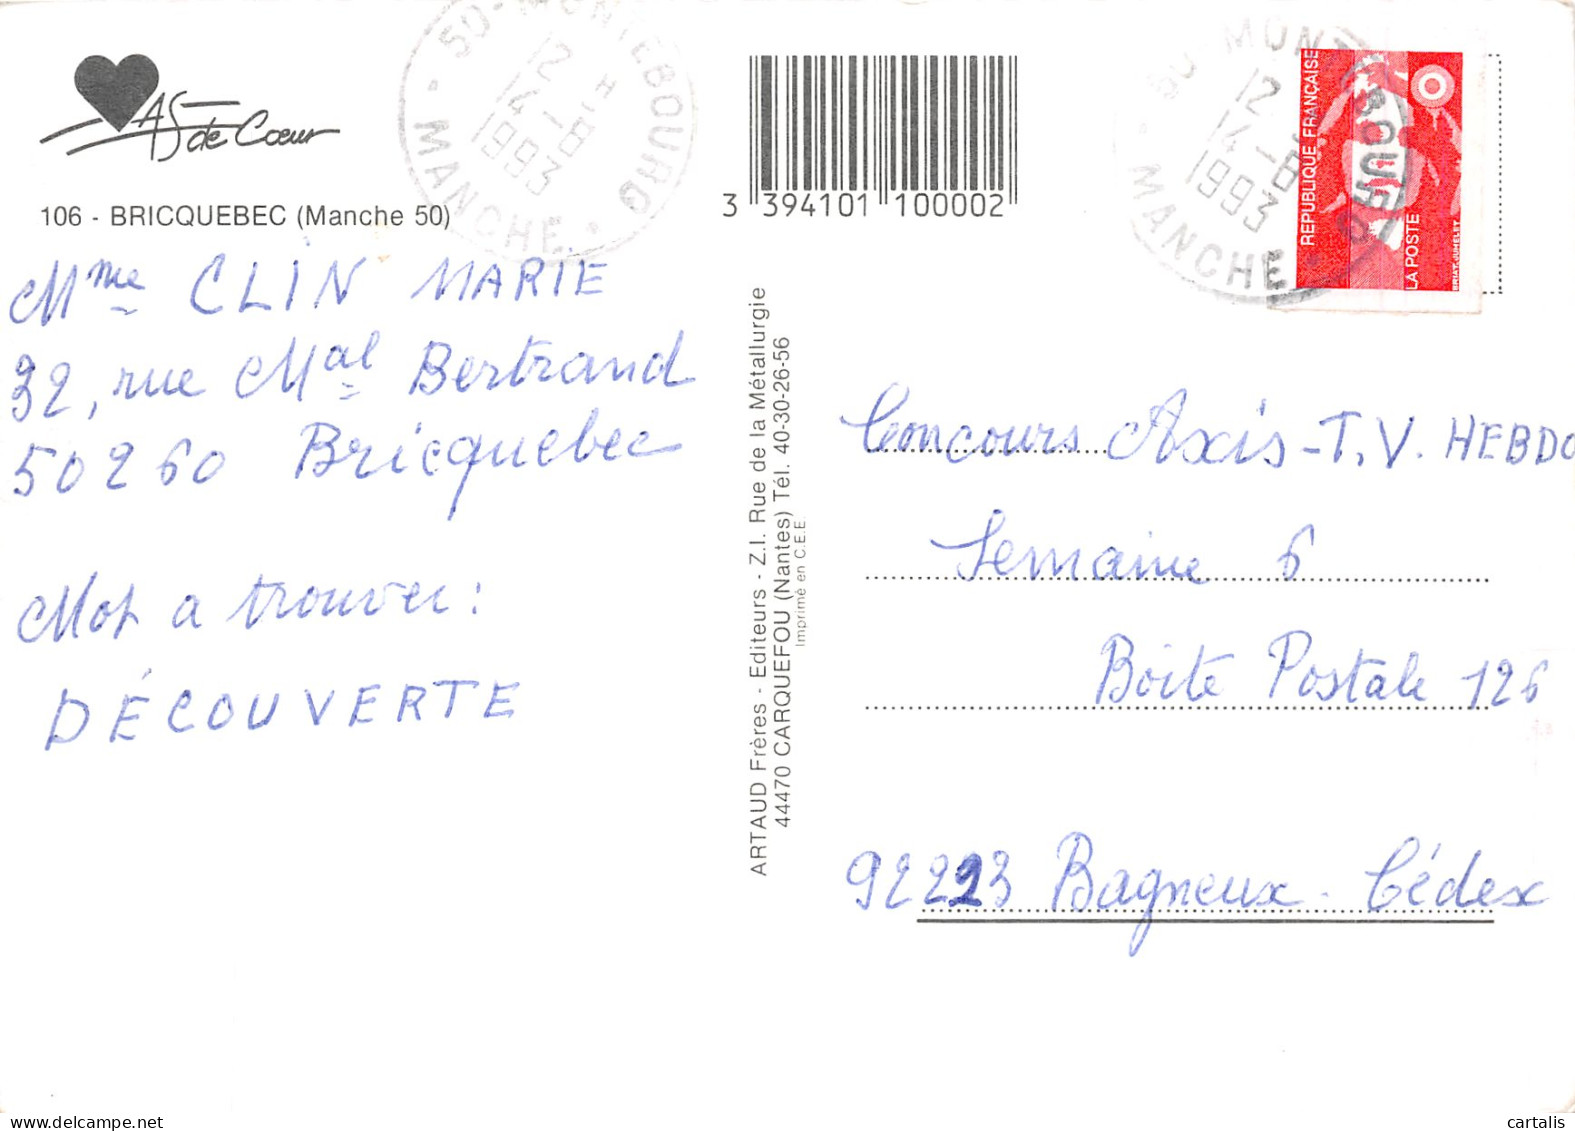 As de Cœur
106 - BRICQUEBEC (Manche 50)
50 - MONTEBOURG
12 H
14-8
1993
MANCHE
Mme CLIN MARIE
32, rue Mal Bertrand
50260 Bricquebec
Mot a trouver :
DÉCOUVERTE
3 394101 100002
ARTAUD Frères - Editeurs - Z.I. Rue de la Métallurgie
44470 CARQUEFOU (Nantes) Tél. 40-30-26-56
Imprimé en C.E.E.
50 MONTEBOURG
12
14-8
1993
MANCHE
REPUBLIQUE FRANÇAISE
LA POSTE
BRIAT-JUMELET
Concours Axis - T.V. HEBDO
Semaine 6
Boite Postale 126
92223 Bagneux - Cédex
cartalis